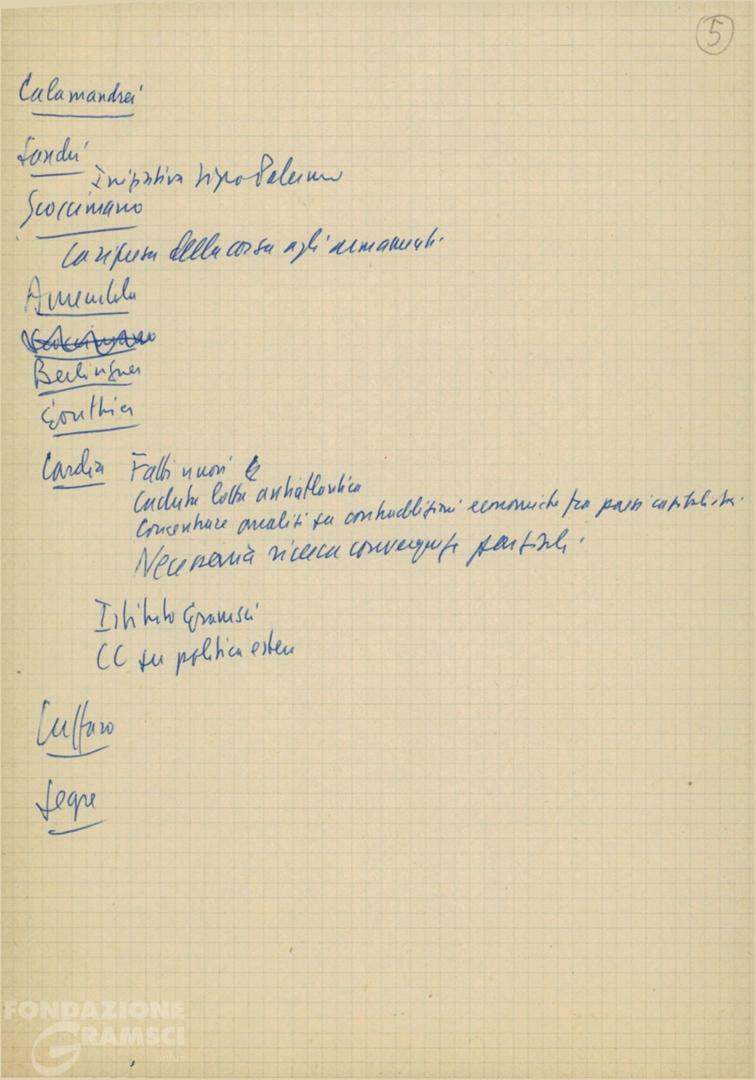 5
Calamandrei
Sandri
Iniziativa tipo Palermo
Scoccimarro
La ripresa della corsa agli armamenti.
Amendola
Berlinguer
Gouthier
Cardia Fatti nuovi
Caduta lotta antiatlantica
Concentrare analisi su contraddizioni economiche fra paesi capitalisti.
Necessità ricerca convergenze parziali.
Istituto Gramsci
CC su politica estera
Cuffaro
Segre
FONDAZIONE
GRAMSCI